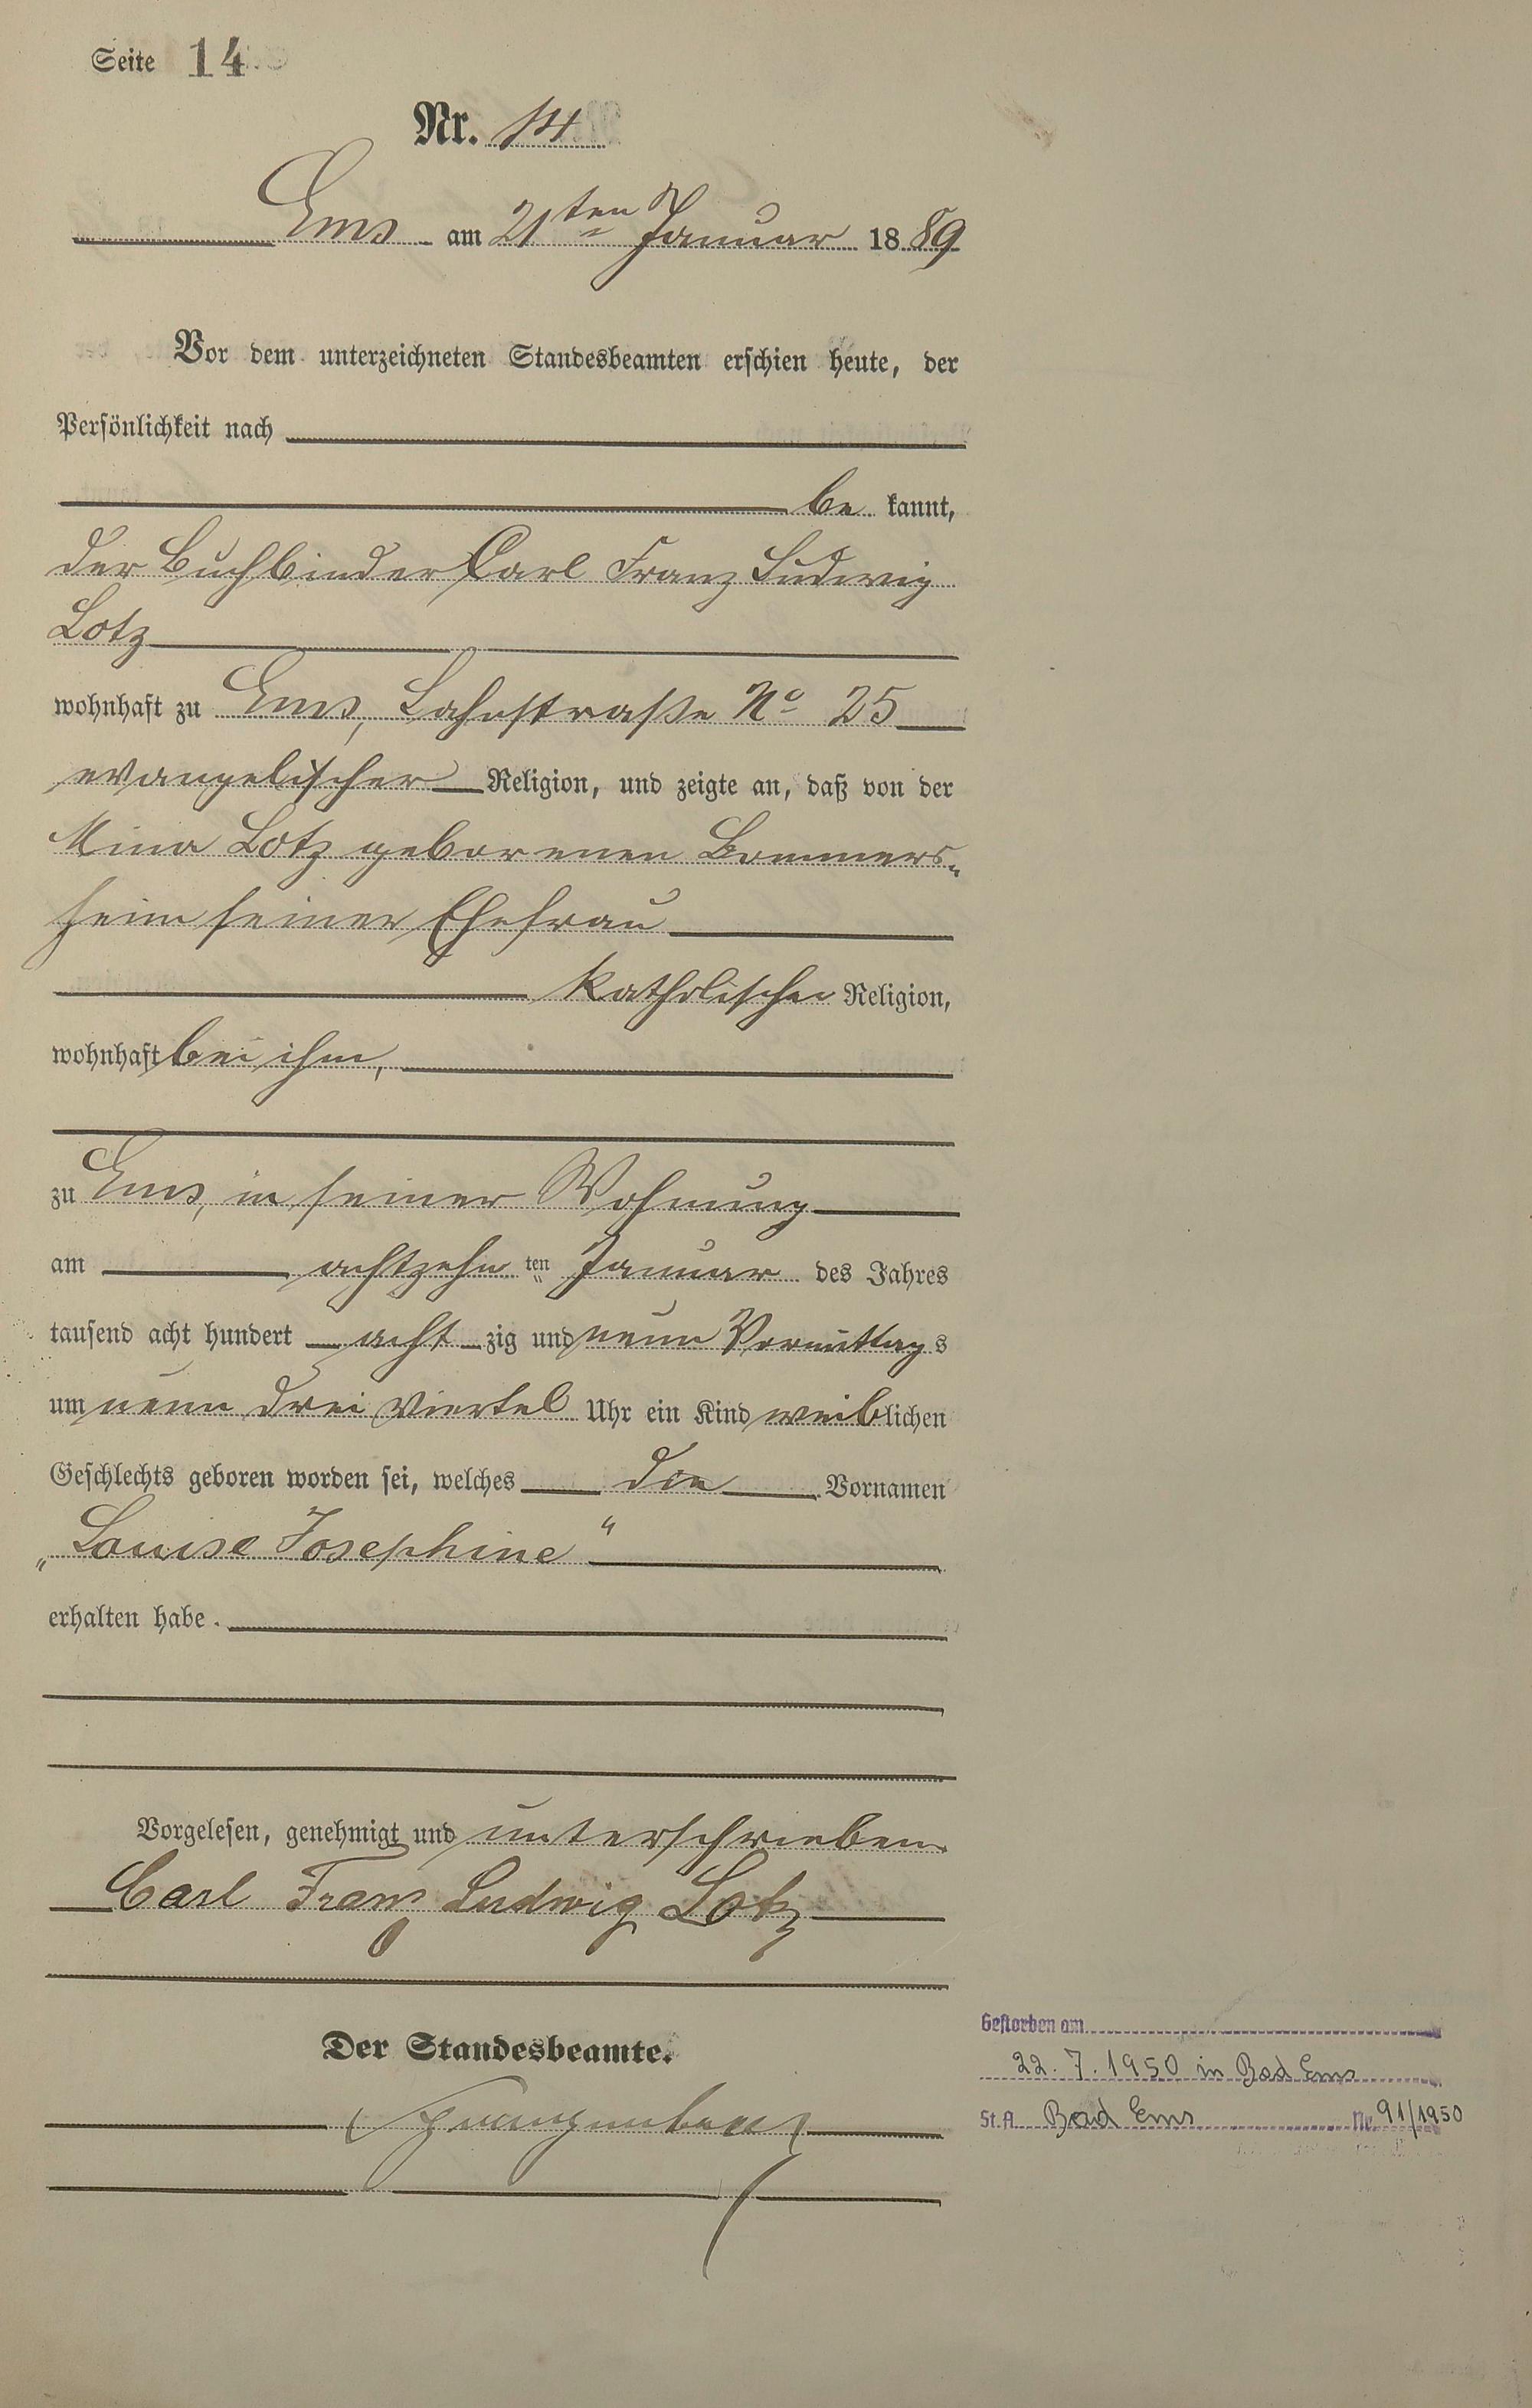 Seite 14
Nr. 14
Ems am 21ten Januar 1889
Vor dem unterzeichneten Standesbeamten erschien heute, der
Persönlichkeit nach
be kannt,
der Buchbinder Carl Franz Ludwig
Lotz
wohnhaft zu Ems, Lahnstraße No 25
evangelischer Religion, und zeigte an, daß von der
Mina Lotz geborenen Bommers-
heim seiner Ehefrau
katholischer Religion,
wohnhaft bei ihm,
zu Ems, in seiner Wohnung
am achtzehn ten Januar des Jahres
tausend acht hundert acht zig und neun Vormittags
um neun drei Viertel Uhr ein Kind weiblichen
Geschlechts geboren worden sei, welches die Vornamen
„Louise Josephine“
erhalten habe.
Vorgelesen, genehmigt und unterschrieben.
Carl Franz Ludwig Lotz
Der Standesbeamte.
Gestorben am
22.7.1950 in Bad Ems
St.A. Bad Ems Nr. 91/1950